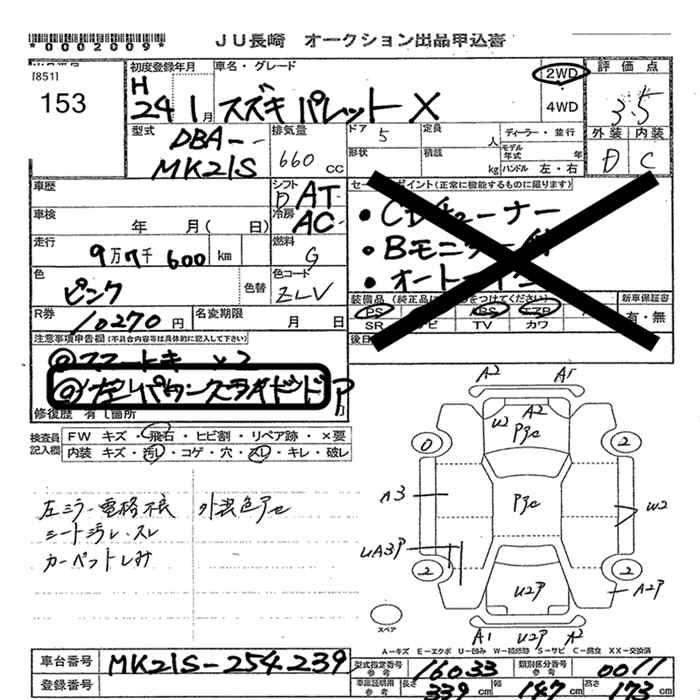 *0002009*
JU長崎 オークション出品申込書
[851]
153
初度登録年月
H
24 1月
車名・グレード
スズキ パレット X
2WD
4WD
評価点
3.5
外装 内装
D C
型式
DBA-
MK21S
排気量
660 cc
ドア 5
定員 人
ディーラー・並行
形状
積載 kg
モデル年式 年
ハンドル 左・右
車歴
シフト
AT
セールスポイント (正常に機能するものに限ります)
車検 年 月( 日)
冷房
AC
・CDチューナー
・Bモニター付
走行 9万7千600 km
燃料 G
色 ピンク 色替
色コード ZLV
R券 10270円
名変期限 月 日
装備品 (純正品に○をつけてください)
新車保証書
有・無
PS ABS エアB
SR ナビ TV カワ
後日
注意事項申告欄 (不具合内容等は具体的に記入して下さい)
@スマートキー ×2
@左パワースライドドア
修復歴 有 [箇所 ]
検査員記入欄
FW キズ・飛石・ヒビ割・リペア跡・×要
内装 キズ・汚レ・コゲ・穴・スレ・キレ・破レ
左ミラー電格不良 外装色アセ
シート汚レ・スレ
カーペットしみ
A2 A1
U2 A2
Pгc
0 2
A3
Pгc
W2
UA3P
2 2
U2P
A2P
スペア
A1 U2P A2
A-キズ E-エクボ U-凹み W-補修跡 S-サビ C-腐食 XX-交換済
車台番号 MK21S-254239
型式指定番号 参考 16033
類別区分番号 参考 0011
登録番号
車庫証明用 参考 長さ 339 cm 幅 147 cm 高さ 173 cm